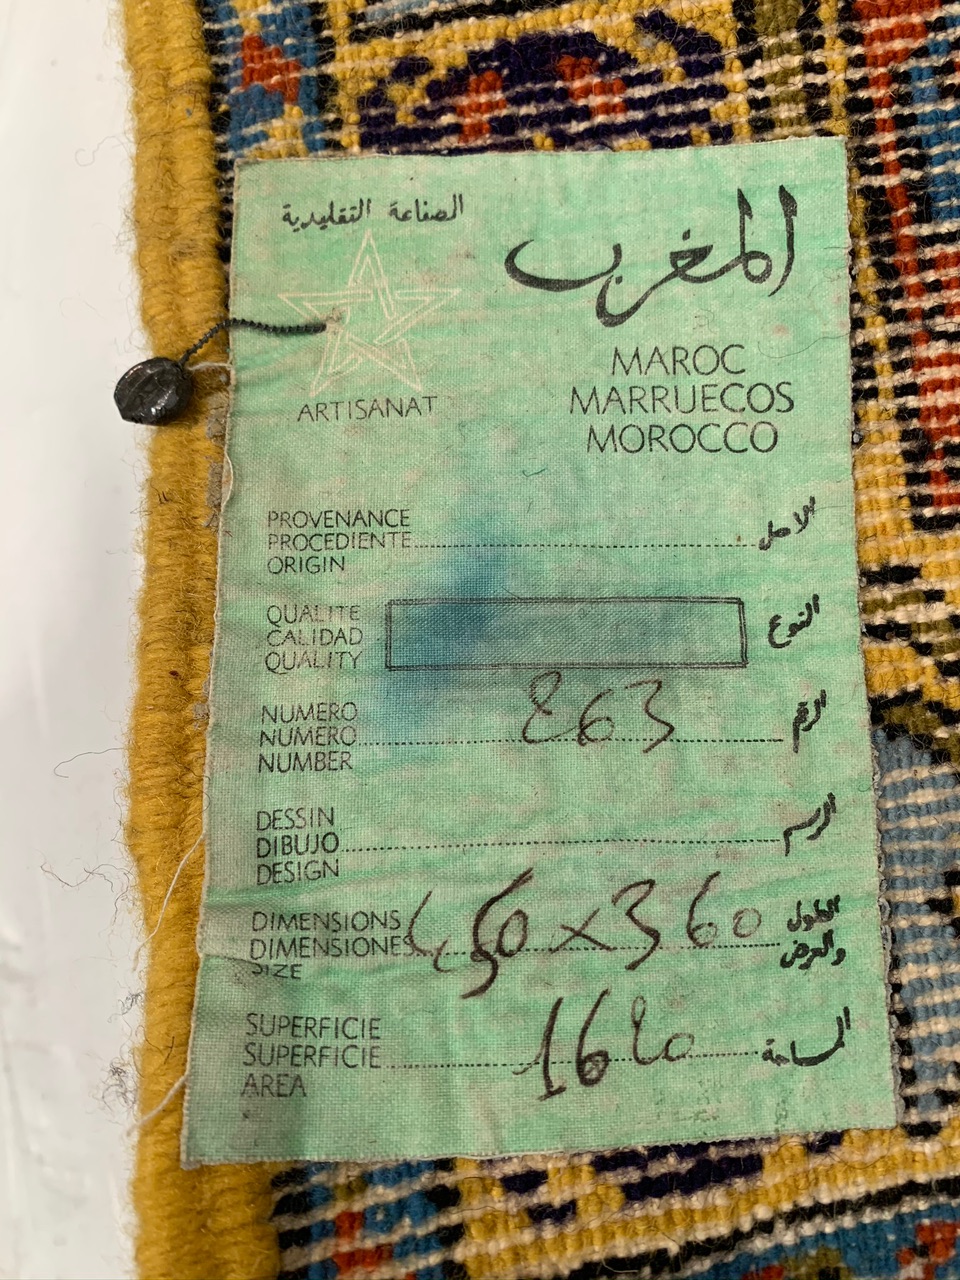 الصناعة التقليدية
المغرب
ARTISANAT
MAROC
MARRUECOS
MOROCCO
PROVENANCE
PROCEDIENTE الاصل
ORIGIN
QUALITE
CALIDAD النوع
QUALITY
NUMERO
NUMERO 863 الرقم
NUMBER
DESSIN
DIBUJO الرسم
DESIGN
DIMENSIONS 450 x 360 الطول
DIMENSIONES والعرض
SIZE
SUPERFICIE
SUPERFICIE 1620 المساحة
AREA